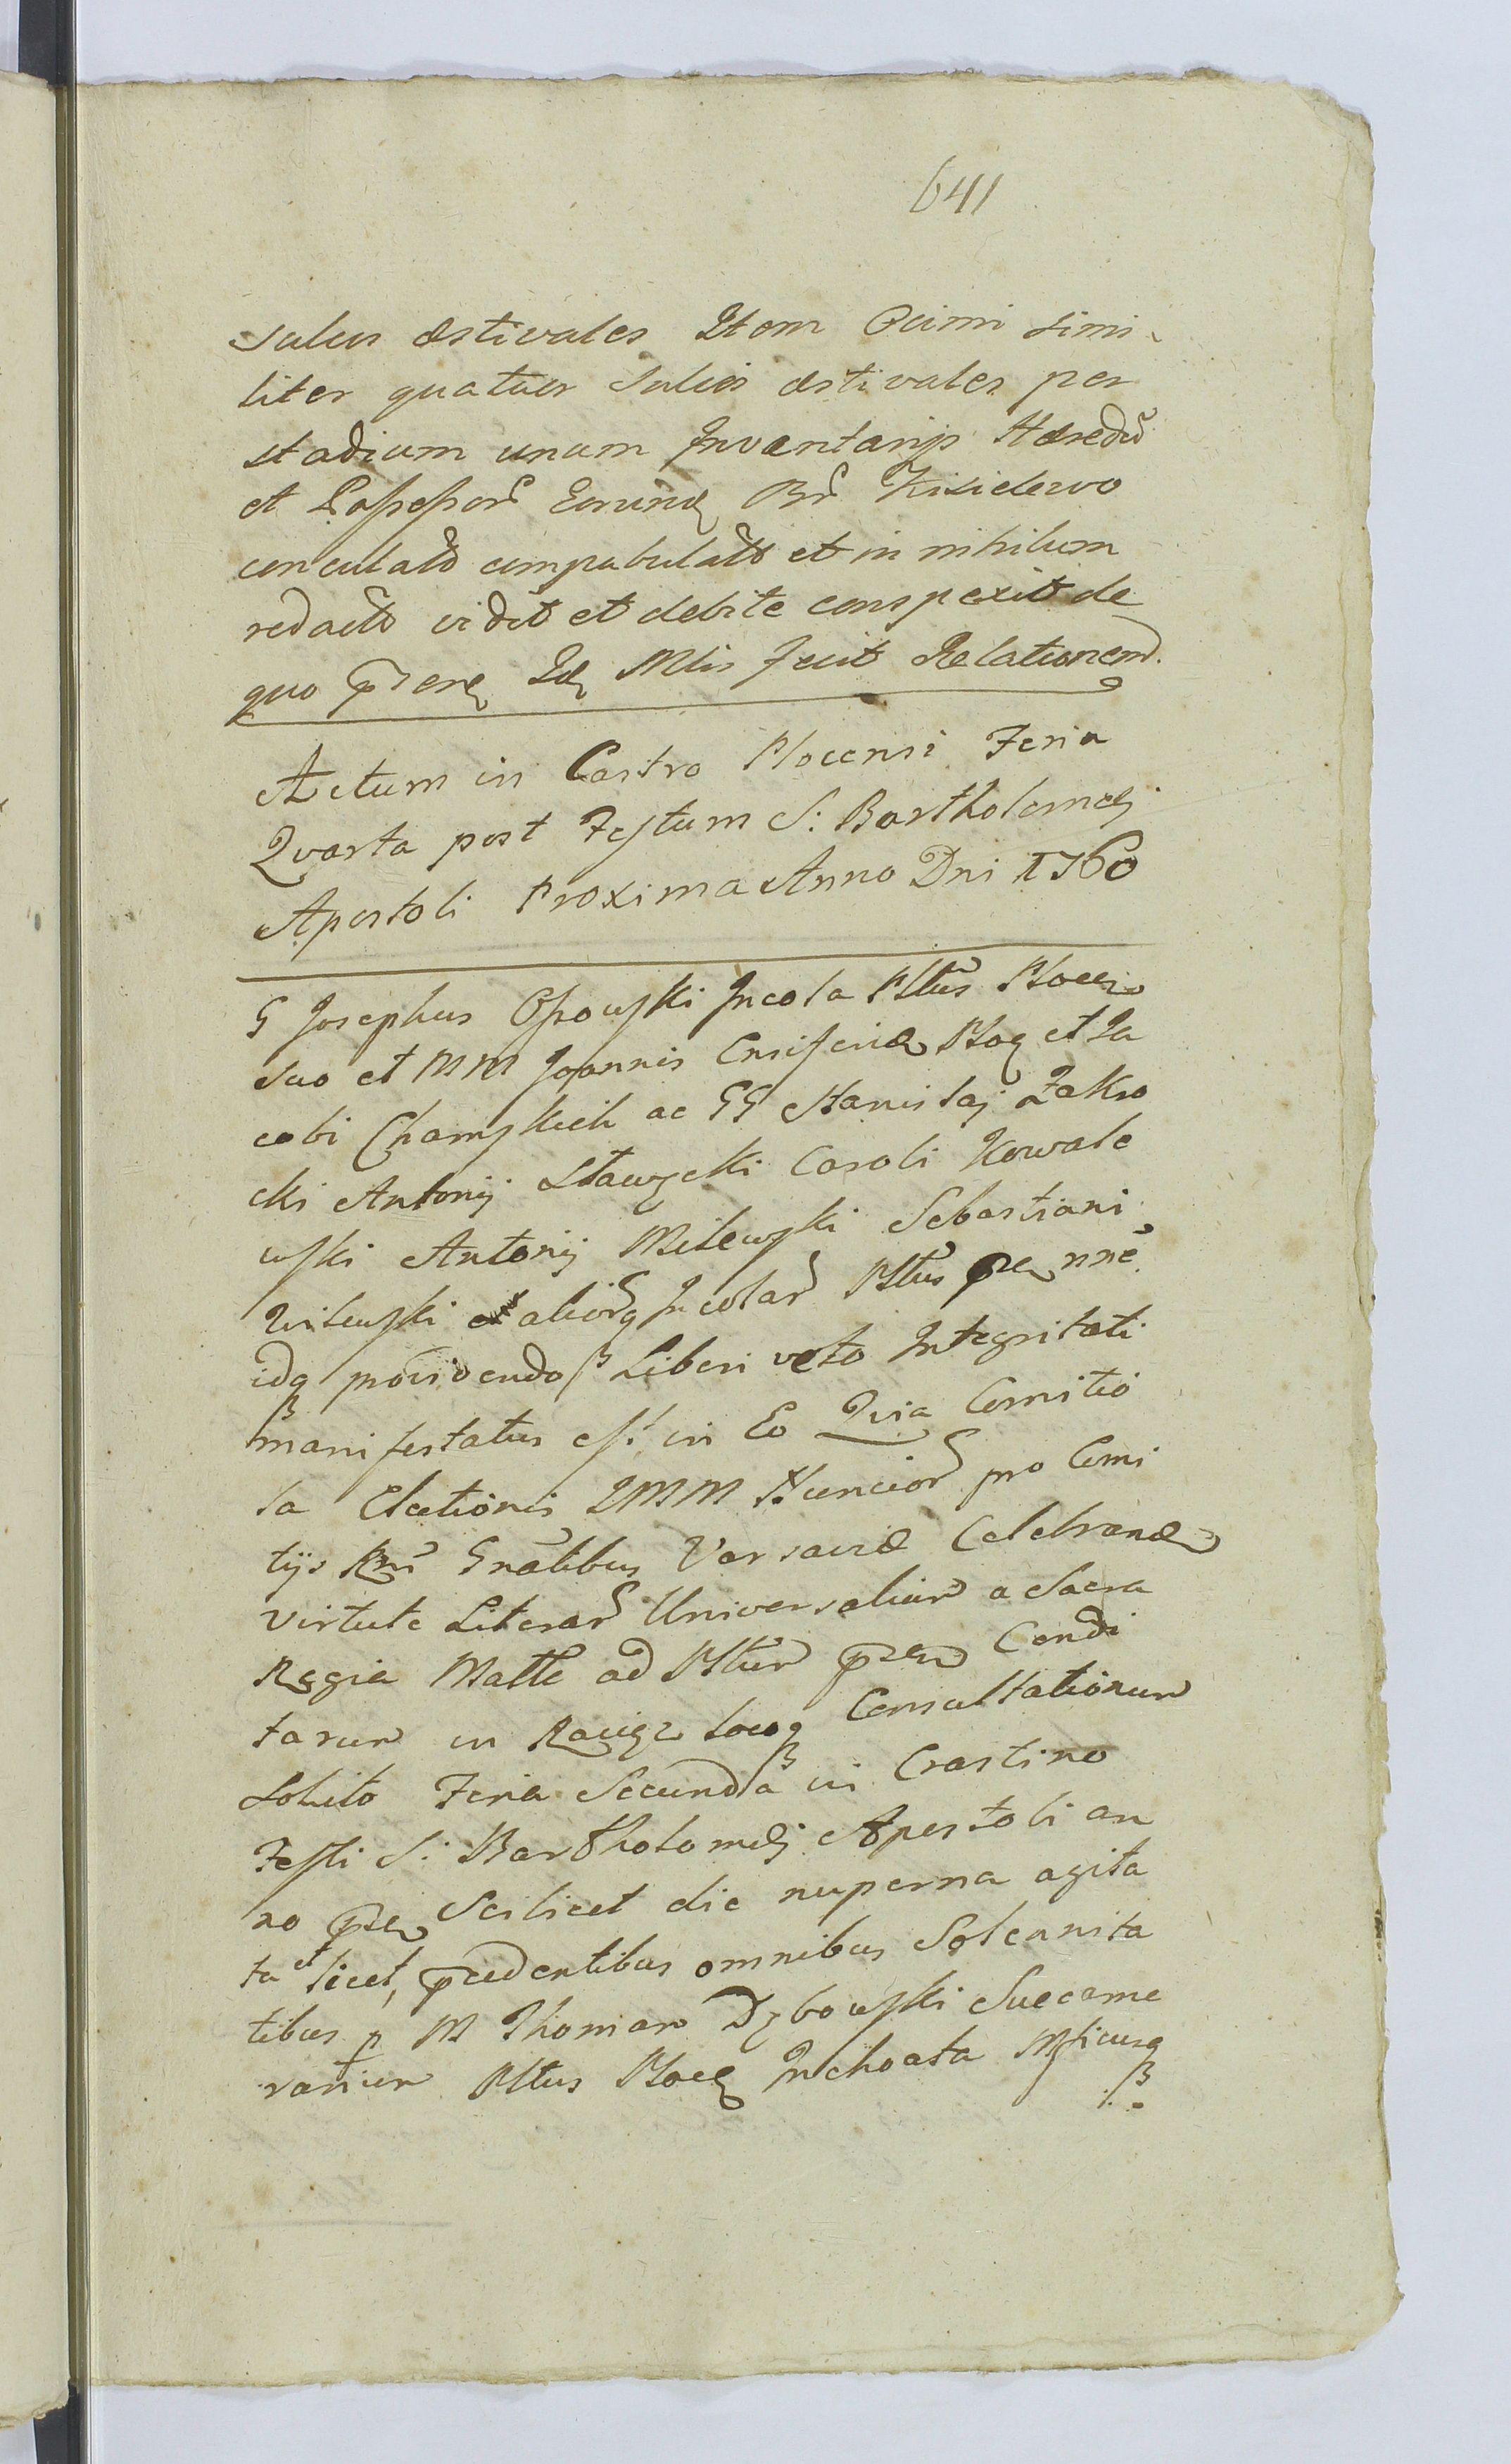 641
sulcos æstivales Item Ocimi simi
liter quatuor sulcos æstivales per
stadium unum Inventarijs Hæredũ
et Possessor̃ Eorund Br̃ Kisielewo
conculatõ compabulatõ et in nihilum
redactõ vidit et debite conspexit de
quo p̃ Mlis fecit Relationem.
Actum in Castro Plocensi Feria
Qvarta post Festum S: Bartholomæj
Apostoli Proxima Anno Dni 1760
G Josephus Ossowski Incola Pltũs Ploceñ
suo et MM Joannis Ensiferidæ Ploc et Ja
cobi Chamskich ac GG Stanislaj Zakro
cki Antonij Sławęcki Caroli Kowale
wski Antonij Milewski Sebastiani
Wilewski alior̃q Incolar̃ Pltus nñe
idq providendo Liberi veto Integritati
manifestatus est in Eo Qvia Comitio
la Electionis IMM Nuncior̃ pro Comi
tijs Rñi Gnãlibus Varsaviæ Celebrand
virtute Literar̃ Universalium a Sacra
Regia Matte ad Pltum Condi
tarum in Raciąz locoq Consultationum
Solito Feria Secunda in Crastino
Festi S: Bartholomæj Apostoli an
no Scilicet die nuperna agita
ta et licet, p̃cedentibus omnibus Solennita
tibus p M Thomam Dębowski Succame
rarium Pltus Ploc Inchoata